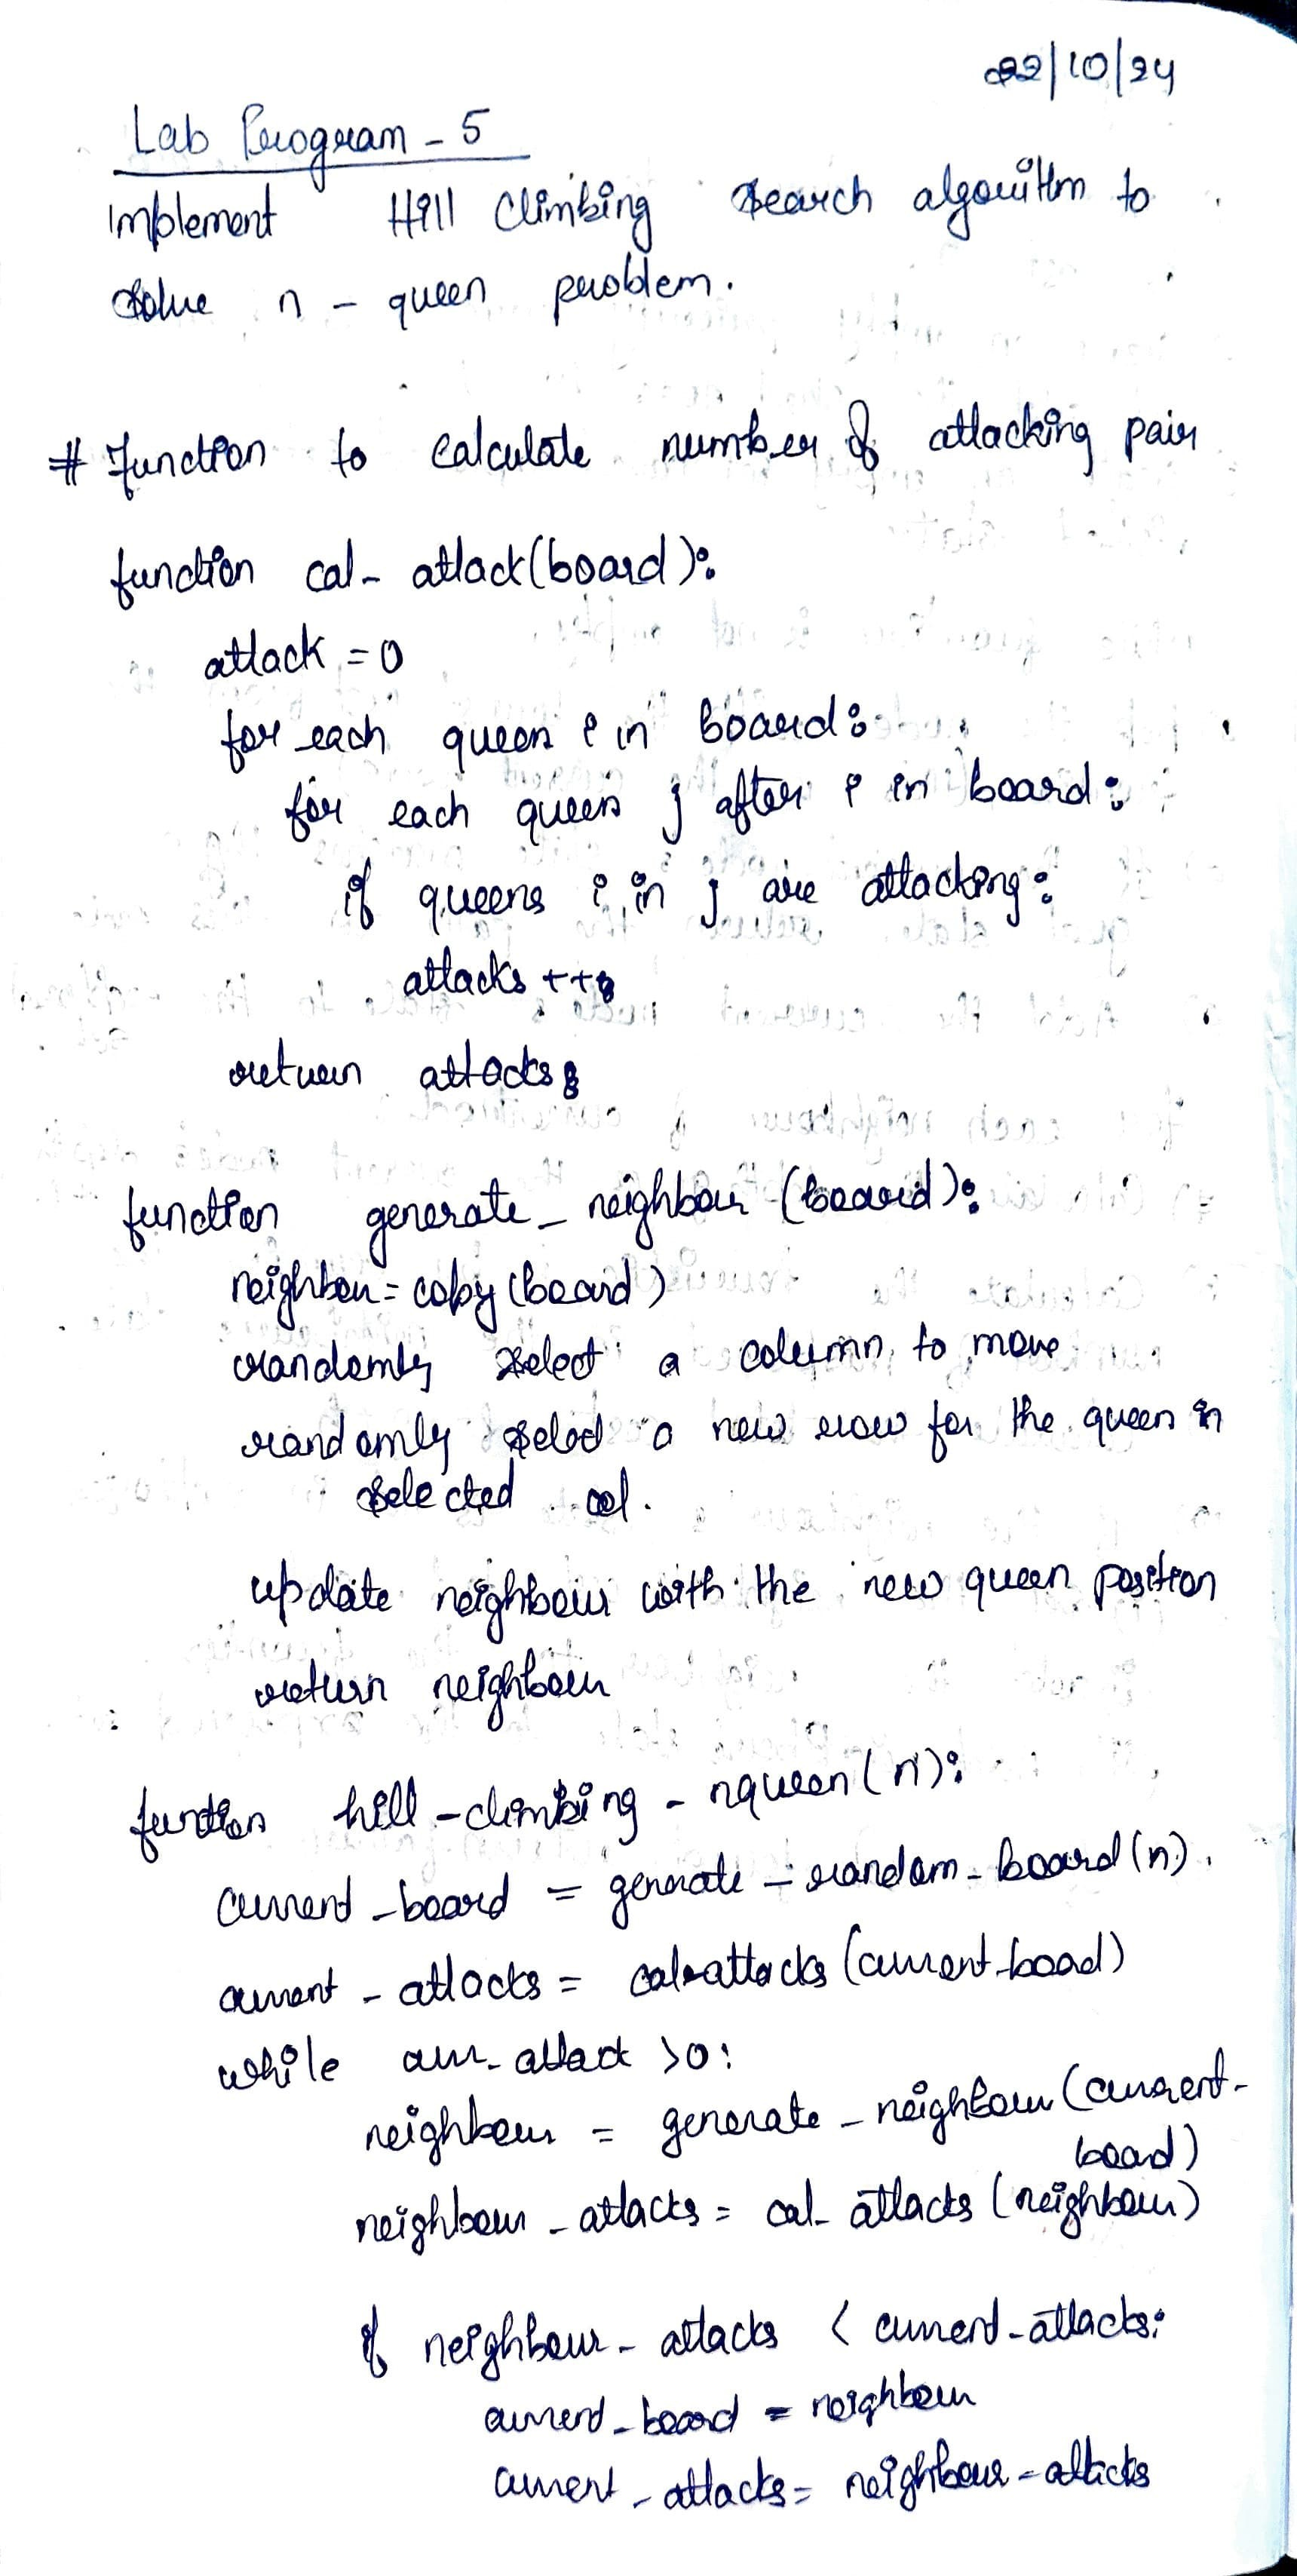 22/10/24
Lab Program - 5
Implement Hill Climbing search algorithm to
solve n - queen problem.
# Function to calculate number of attacking pair
function cal_attack(board):
attack = 0
for each queen i in board:
for each queen j after i in board:
if queens i in j are attacking:
attacks ++;
return attacks;
function generate_neighbour (board):
neighbour = copy (board)
randomly select a column to move
randomly select a new row for the queen in
selected col.
update neighbour with the new queen position
return neighbour
function hill-climbing-nqueen(n):
current_board = generate-random-board(n).
current_attacks = cal-attacks (current_board)
while curr_attack >0:
neighbour = generate_neighbour (current-
board)
neighbour_attacks = cal_attacks (neighbour)
if neighbour_attacks < current_attacks:
current_board = neighbour
current_attacks = neighbour_attacks